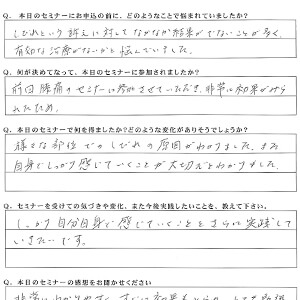 Q. 本日のセミナーにお申込の前に、どのようなことで悩まれていましたか?
しびれという訴えに対してなかなか結果がでないことが多く、
有効な治療がないかと悩んでいました。
Q. 何が決めてなって、本日のセミナーに参加されましたか?
前回 腰痛のセミナーに参加させていただき、非常に効果がみら
れたため。
Q. 本日のセミナーで何を得ましたか?どのような変化がありそうでしょうか?
様々な部位でのしびれの原因がわかりました。また
自身でしっかり感じていくことが大切だとわかりました。
Q. セミナーを受けての気づきや変化、また今後実践したいことを、教えて下さい。
しっかり自分自身で感じていくことをさらに実践して
いきたいです。
Q. 本日のセミナーの感想をお聞かせください